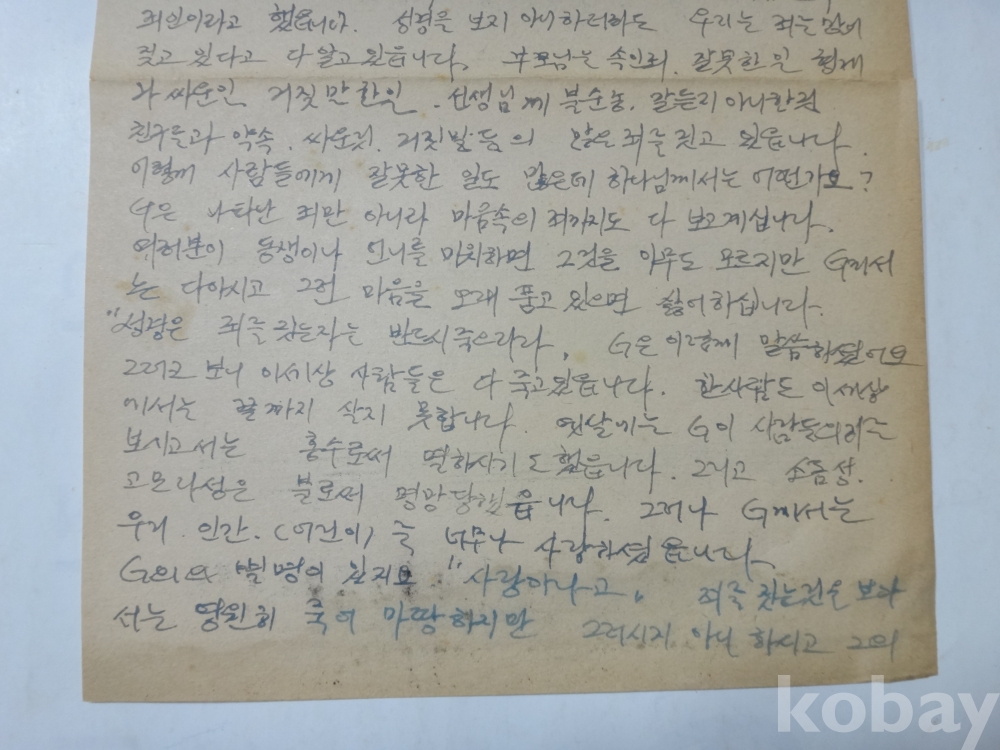 죄인이라고 했읍니다. 성경을 보지 아니하더라도 우리는 죄는 많이
짖고 있다고 다 알고 있읍니다. 부모님을 속인죄. 잘못한일 형제
와 싸운일. 거짓말한일. 선생님께 불순종. 말듣지 아니한것
친구들과 약속. 싸운것. 거짓말등의 많은 죄를 짓고 있읍니다.
이렇게 사람들에게 잘못한 일도 많은데 하나님께서는 어떤가요?
G은 나타난 죄만 아니라 마음속의 죄까지도 다 보고계십니다.
여러분이 동생이나 언니를 미워하면 그것을 아무도 모르지만 G께서
는 다아시고 그런 마음을 오래 품고 있으면 싫어하십니다.
"성경은 죄를 짓는자는 반드시 죽으리라„ G은 이렇게 말씀하셨어요
그러고 보니 이세상 사람들은 다 죽고있읍니다. 한사람도 이세상
에서는 끝까지 살지 못합니다. 옛날에는 G이 사람들의죄를
보시고서는 홍수로써 멸하시기도 했읍니다. 그리고 소돔성.
고모라성은 불로써 멸망당했읍니다. 그러나 G께서는
우리 인간. (어린이)를 너무나 사랑하셨읍니다.
G의 별명이 있지요 "사랑이라고„ 죄를 짓는것을 보아
서는 영원히 죽어 마땅하지만 그러시지 아니 하시고 그의
kobay